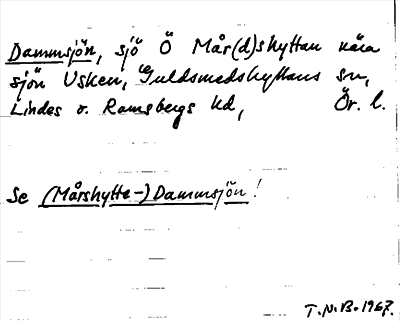 Dammsjön, sjö Ö Mår(d)shyttan nära
sjön Usken, Guldsmedshyttans sn,
Lindes o. Ramsbergs hd, Ör. l.
Se (Mårshytte-) Dammsjön!
T.N.B. 1967.